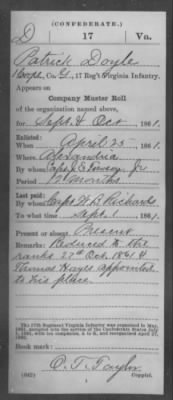 (CONFEDERATE.)
D 17 Va.
Patrick Doyle
Corpl, Co. G, 17 Reg't Virginia Infantry.
Appears on
Company Muster Roll
of the organization named above,
for Sept & Oct, 1861.
Enlisted:
When April 25, 1861.
Where Alexandria
By whom Capt J. E. Towson Jr
Period 12 months
Last paid:
By whom Capt W. B. Richards
To what time Sept 1, 1861.
Present or absent Present
Remarks: Reduced to the
ranks 27th Oct. 1861 &
Thomas Hayes appointed
to his place.
The 17th Regiment Virginia Infantry was
Book mark:
O. T. Taylor
(642) Copyist.